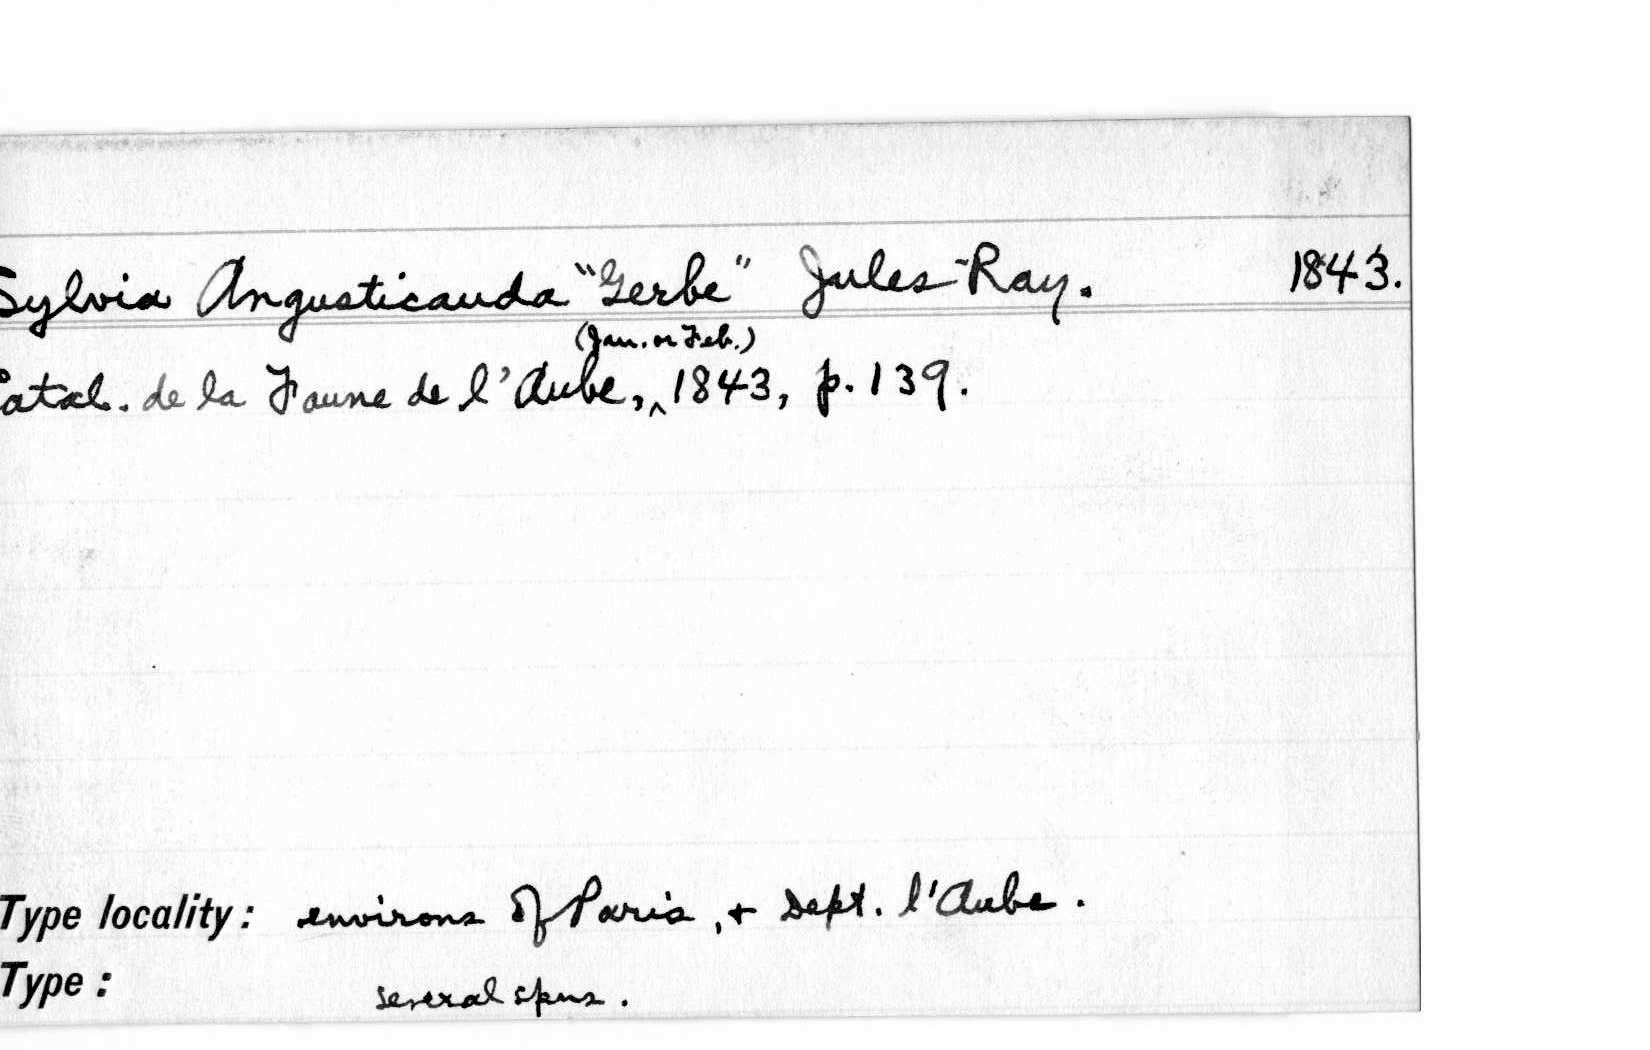 Sylvia Angusticauda "Gerbe" Jules-Ray. 1843.
(Jan. or Feb.)
Catal. de la Faune de l'Aube, ^ 1843, p. 139.
Type locality: environs of Paris, + Dept. l'Aube.
Type: several spms.